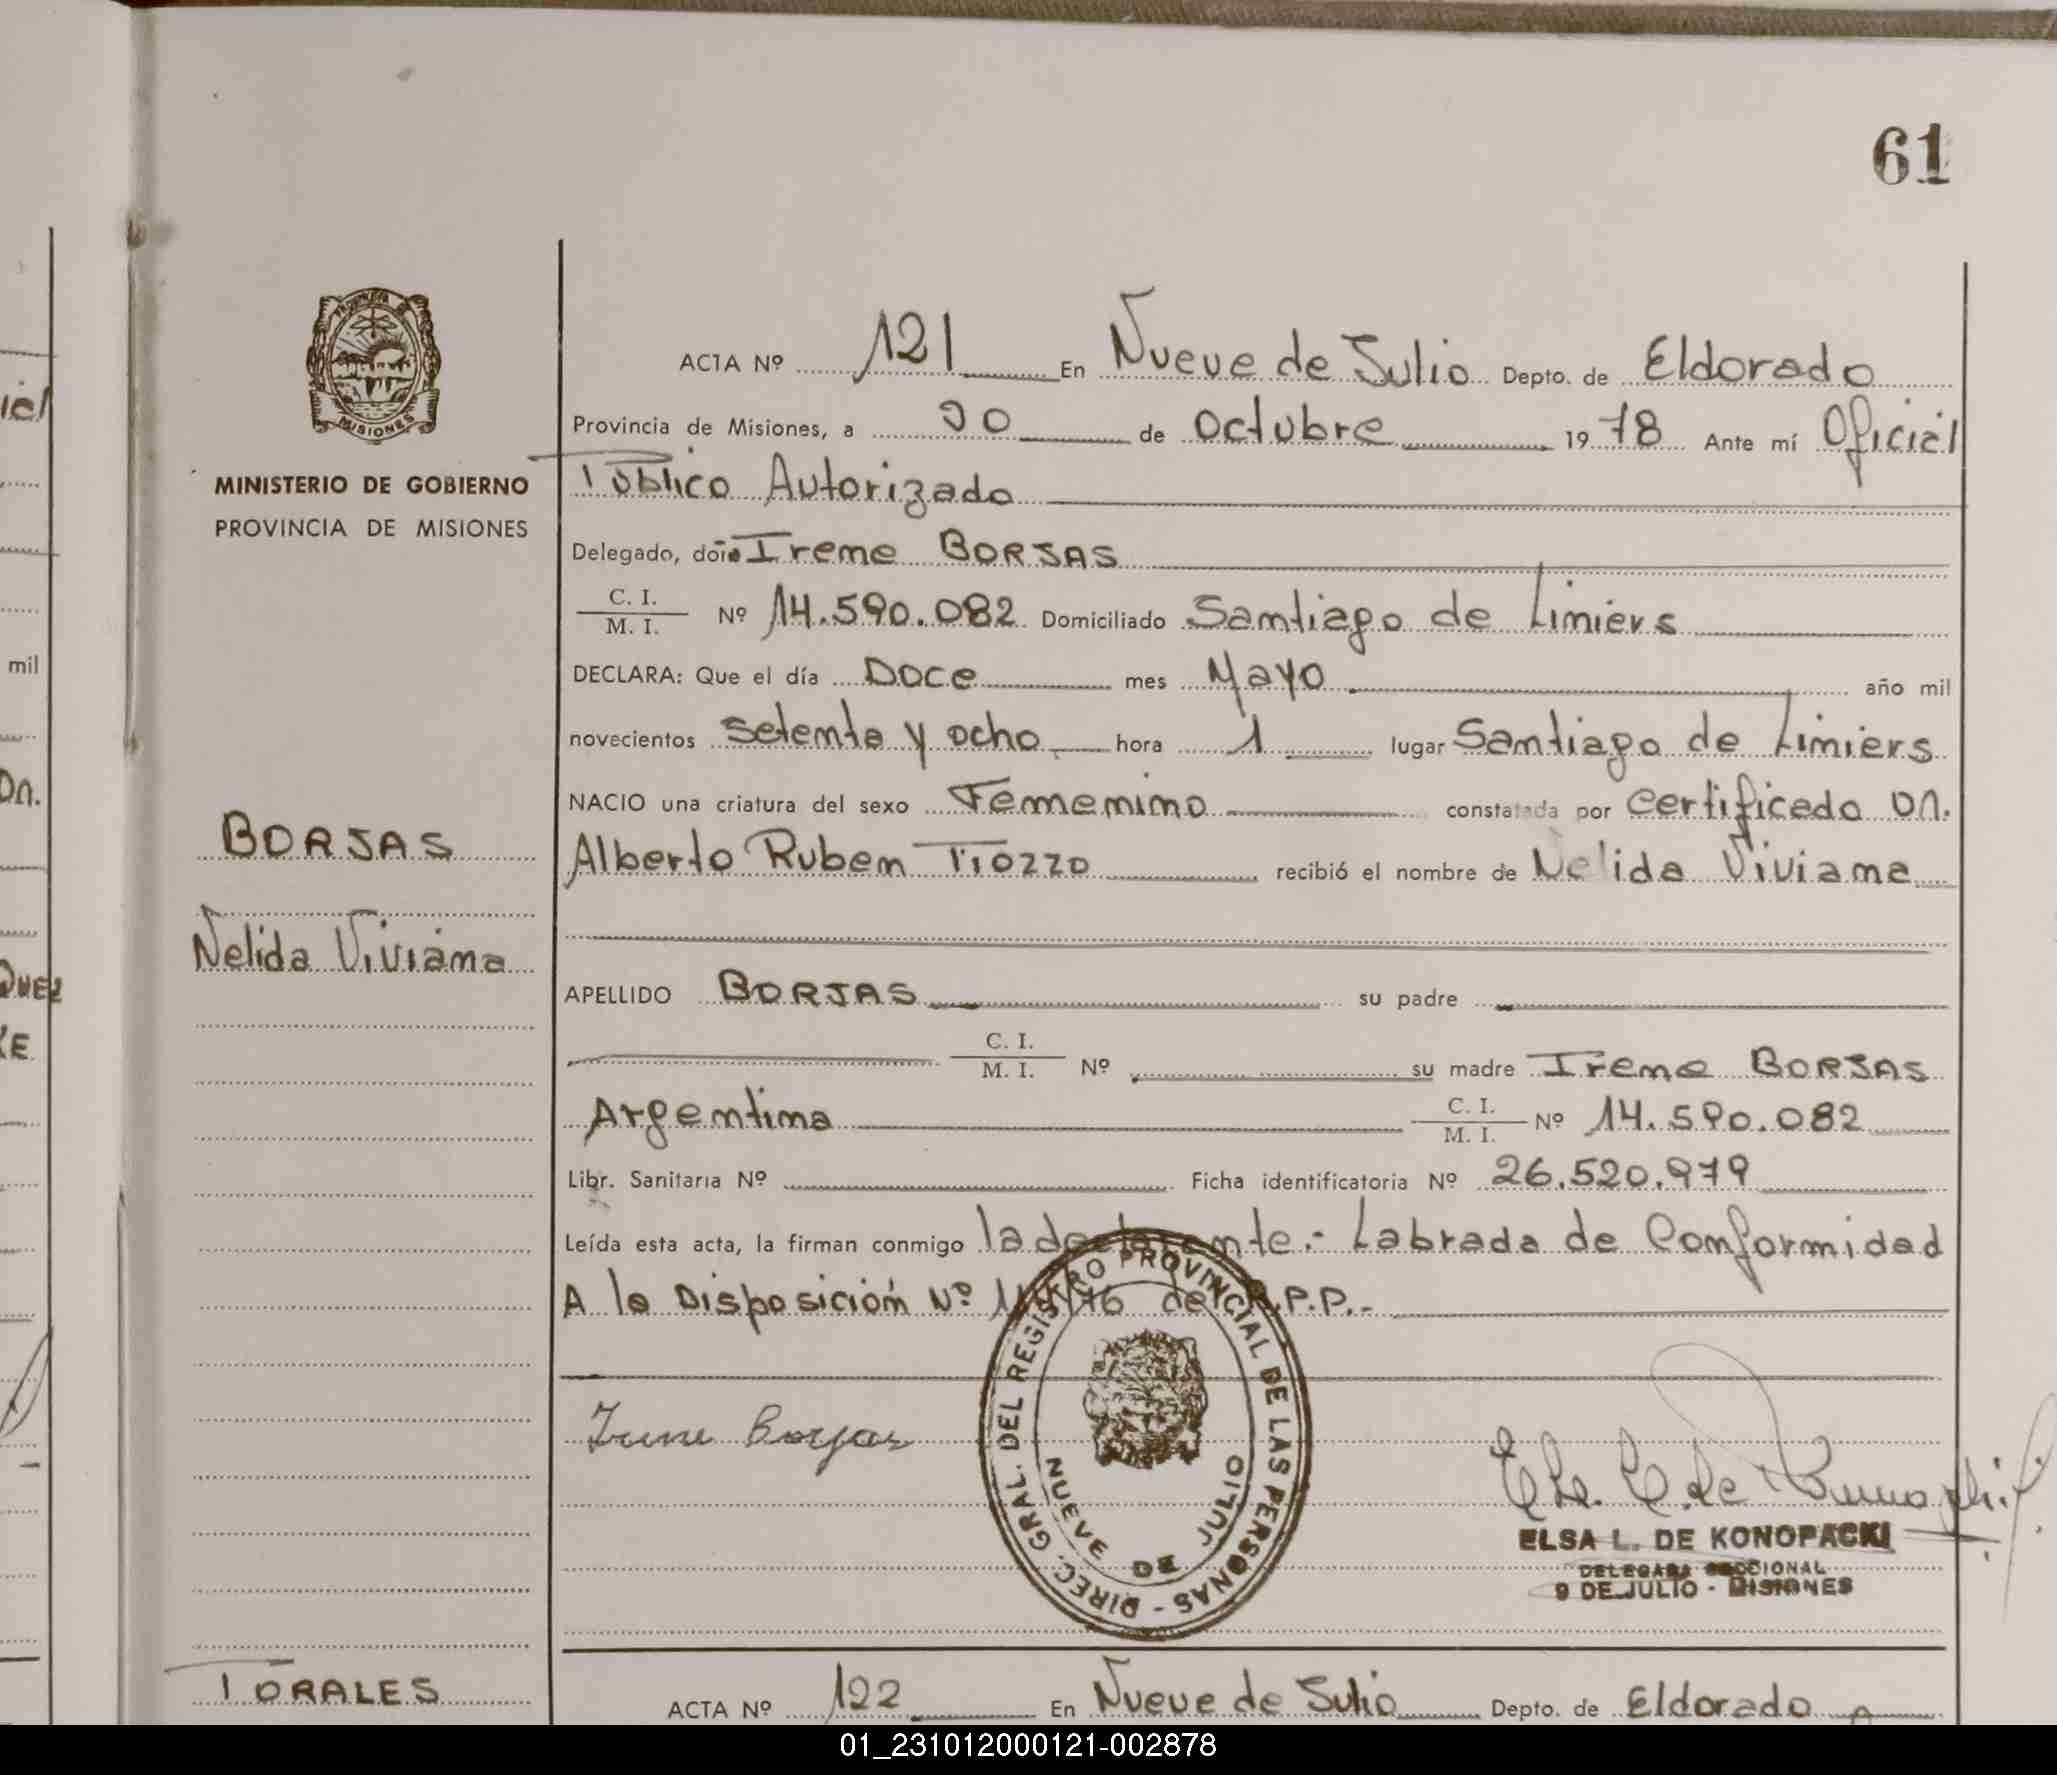 61
ACTA Nº 121 En Nueve de Julio Depto. de Eldorado
Provincia de Misiones, a 30 de Octubre 1978 Ante mí Oficial
Público Autorizado
MINISTERIO DE GOBIERNO
PROVINCIA DE MISIONES
MISIONES
Delegado, doña Irene BORJAS
C. I.
M. I. Nº 14.590.082 Domiciliado Santiago de Liniers
DECLARA: Que el día Doce mes Mayo año mil
novecientos setenta y ocho hora 1 lugar Santiago de Liniers
NACIO una criatura del sexo Femenino constatada por certificado Dn.
Alberto Ruben Tiozzo recibió el nombre de Nelida Viviana
BORJAS
Nelida Viviana
APELLIDO BORJAS su padre
C. I.
M. I. Nº su madre Irene BORJAS
Argentina C. I.
M. I. Nº 14.590.082
Libr. Sanitaria Nº Ficha identificatoria Nº 26.520.979
Leída esta acta, la firman conmigo la declarante.- Labrada de Conformidad
A la Disposición Nº del R.P.P.-
Irene Borjas
DIREC. GRAL. DEL REGISTRO PROVINCIAL DE LAS PERSONAS -
NUEVE DE JULIO
ELSA L. DE KONOPACKI
DELEGADA SECCIONAL
9 DE JULIO - MISIONES
TORALES
ACTA Nº 122 En Nueve de Julio Depto. de Eldorado
mil
Dn.
01_231012000121-002878